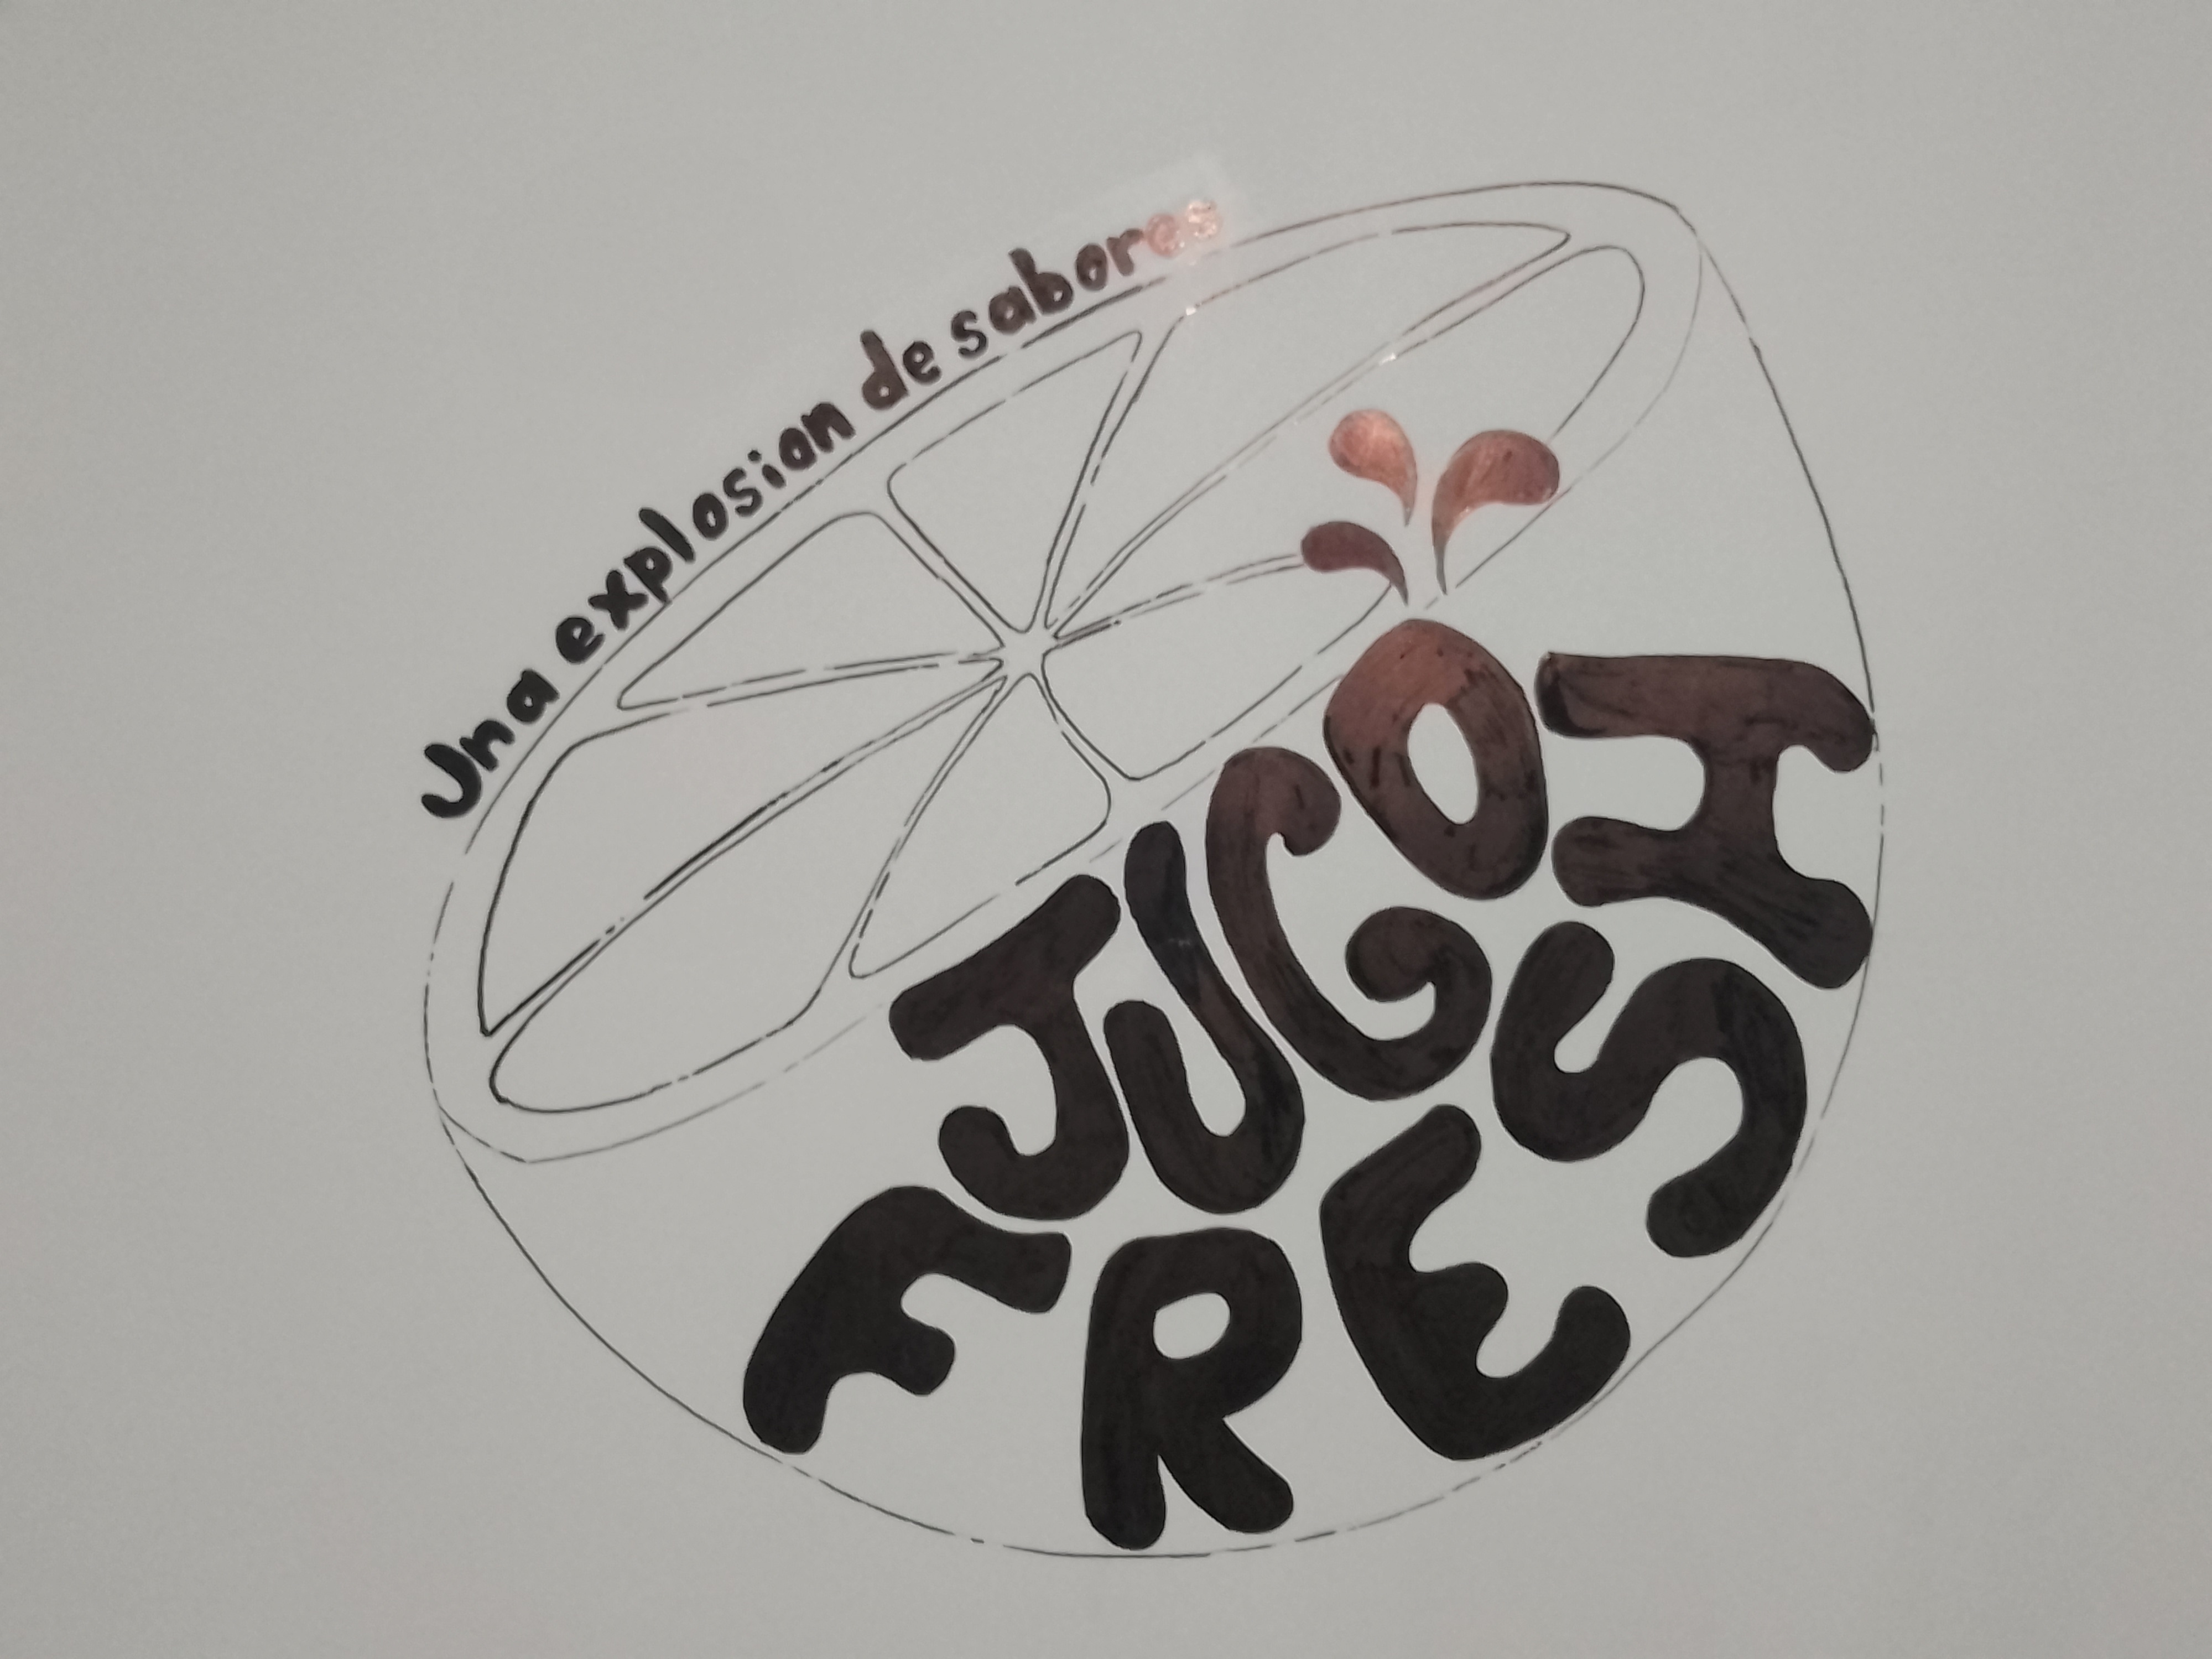 Una explosion de sabores
JUGO
FRESH